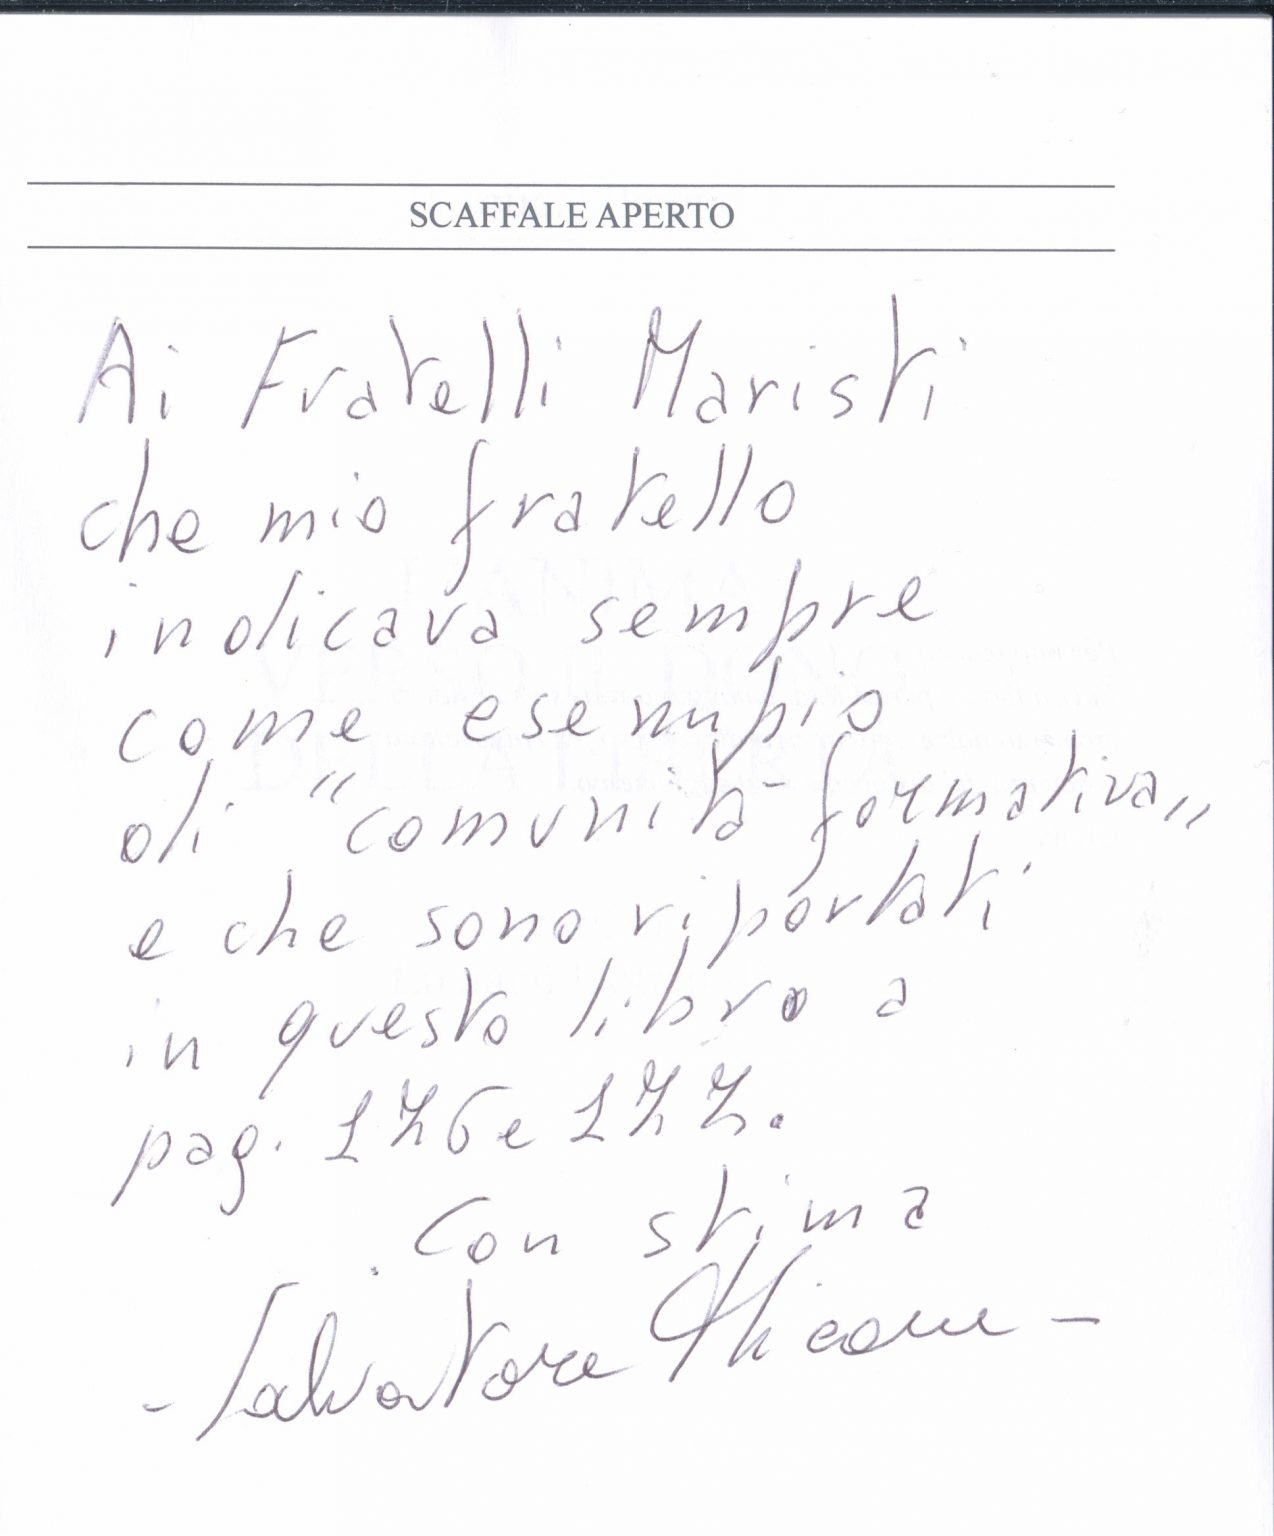 SCAFFALE APERTO
Ai Fratelli Maristi
che mio fratello
indicava sempre
come esempio
di "comunità formativa"
e che sono riportati
in questo libro a
pag. 176 e 177.
Con stima
- Salvatore